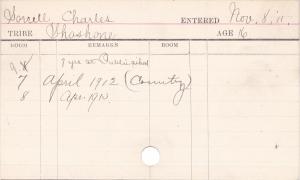 Sorrell, Charles ENTERED Nov. 8, '11.
TRIBE Shoshone AGE 16
ROOM REMARKS ROOM
7 yrs at Public School
7 April 1912 (Country)
8 Apr. 1910